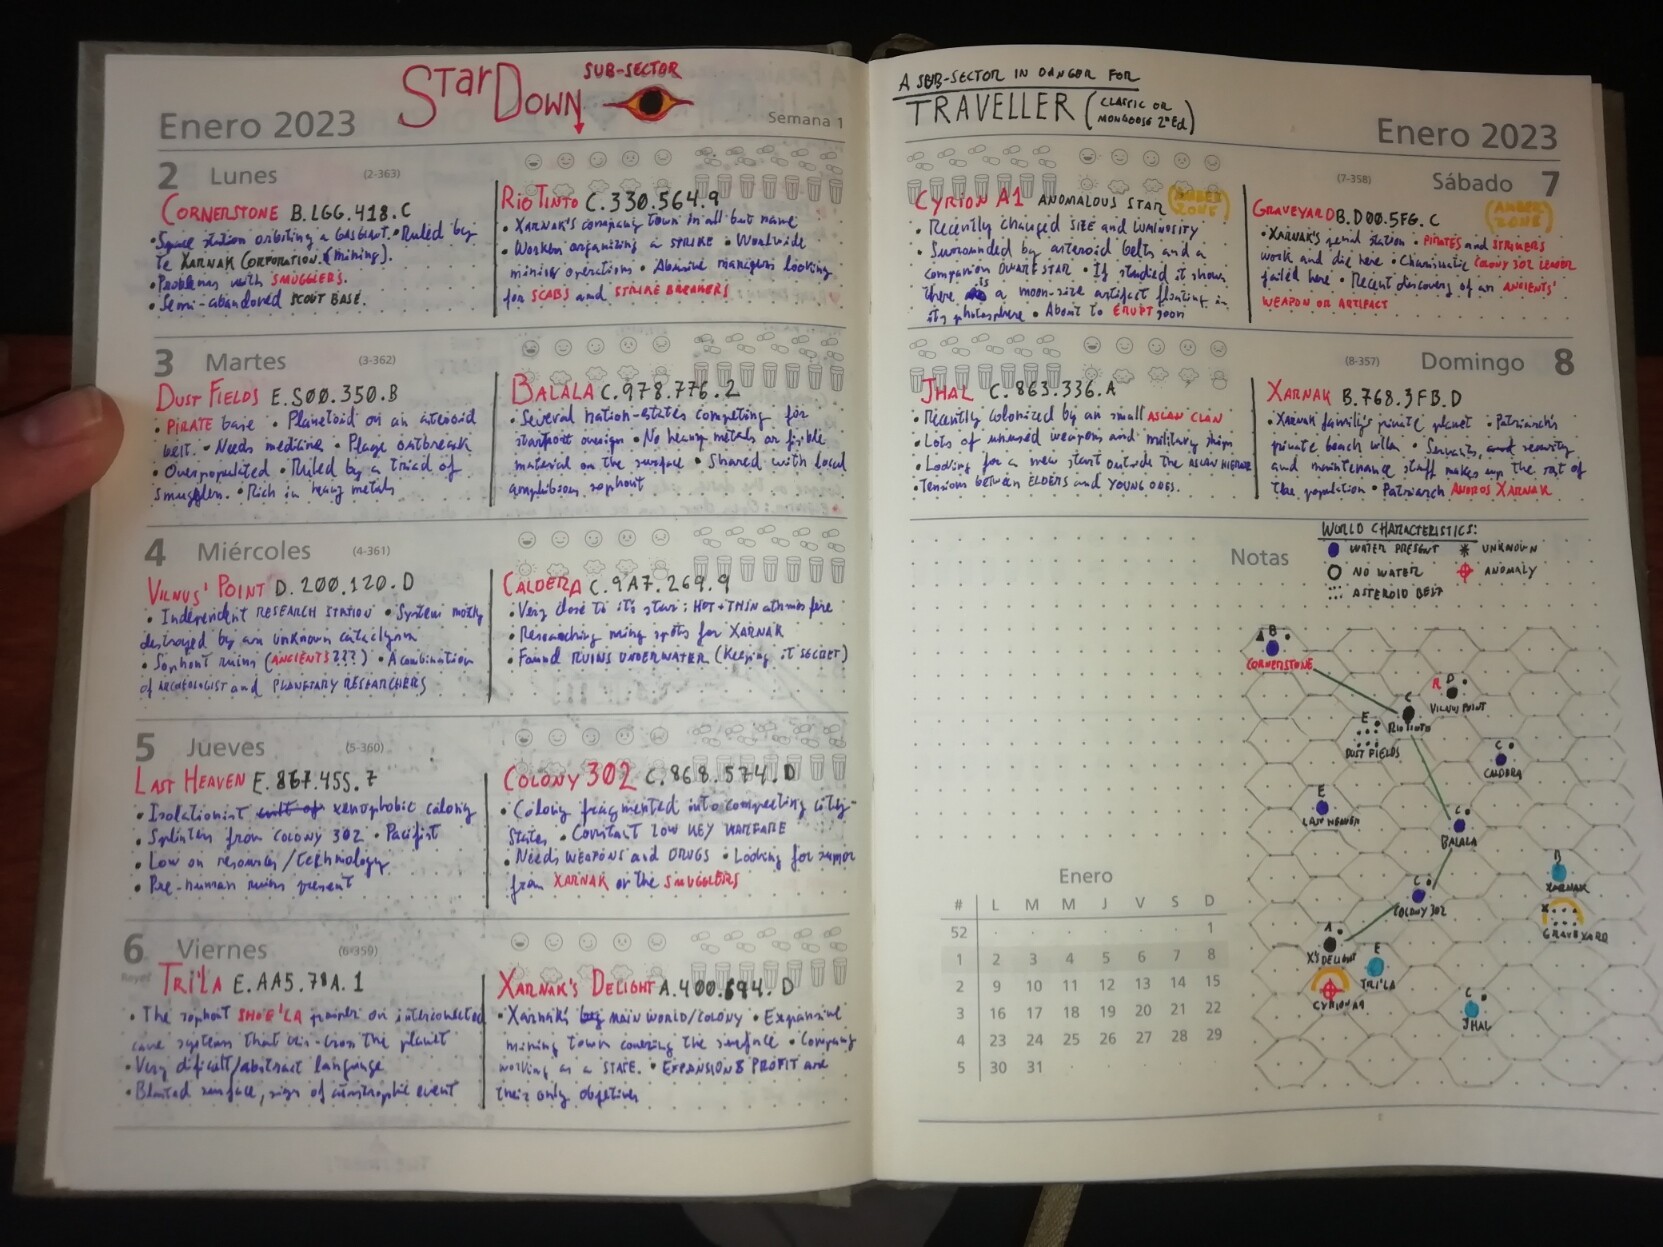 StarDown
SUB-SECTOR
Enero 2023
Semana 1
2 Lunes (2-363)
CORNERSTONE B.LGG.418.C
• Space station orbiting a GAS GIANT. • Ruled by
te XARNAK CORPORATION (mining).
• Problems with SMUGGLERS.
• Semi-abandoned SCOUT BASE.
RIO TINTO C.330.564.9
• XARNAK'S company town in all but name
• Workers organizing a STRIKE • Worldwide
mining operations • Abusive managers looking
for SCABS and STRIKE BREAKERS
3 Martes (3-362)
DUST FIELDS E.S00.350.B
• PIRATE base • Planetoid on an asteroid
belt. • Needs medicine • Plage outbreak
• Overpopulated • Ruled by a triad of
smugglers. • Rich in heavy metals
BALALA C.978.776.2
• Several nation-states competing for
starport • No heavy metals or fissible
material on the surface • Shared with local
amphibious sophont
4 Miércoles (4-361)
VILNUS' POINT D.200.120.D
• Independent RESEARCH STATION • System mostly
destroyed by an unknown cataclysm
• Sophont ruins (ANCIENTS???) • A combination
of ARCHEOLOGIST and PLANETARY RESEARCHERS
CALDERA C.9A7.269.9
• Very close to its star: HOT + THIN athmosfere
• Researching mining spots for XARNAK
• Found RUINS UNDERWATER (Keeping it SECRET)
5 Jueves (5-360)
LAST HEAVEN E.867.455.7
• Isolationist xenophobic colony
• Splinters from COLONY 302 • Pacifist
• Low on resources/technology
• Pre-human ruins present
COLONY 302 C.868.574.D
• Colony fragmented into competing city-
states • Constant LOW KEY WARFARE
• Needs WEAPONS and DRUGS • Looking for support
from XARNAK or the SMUGGLERS
6 Viernes (6-359)
Reyes
TRI'LA E.AA5.78A.1
• The sophont SHO'E'LA prosper on interconnected
cave systems that cris-cross the planet
• Very dificult/abstract language
• Blasted surface, sign of catastrophic event
XARNAK'S DELIGHT A.400.694.D
• Xarnak's MAIN WORLD/COLONY • Expansive
mining town covering the surface • Company
working as a STATE. • EXPANSION & PROFIT are
their only objetives
A SUB-SECTOR IN DANGER FOR
TRAVELLER (CLASSIC OR
MONGOOSE 2ª Ed)
Enero 2023
(7-358) Sábado 7
CYRION A1 ANOMALOUS STAR AMBER ZONE
• Recently changed SIZE and LUMINOSITY
• Surrounded by asteroid belts and a
companion DWARF STAR • If studied it shows
there is a moon-size artifact floating in
its photosphere • About to ERUPT soon
GRAVEYARD B.D00.5FG.C AMBER ZONE
• XARNAK'S penal station • PIRATES and STRIKERS
work and die here • Charismatic COLONY 302 LEADER
jailed here • Recent discovery of an ANCIENTS'
WEAPON OR ARTIFACT
(8-357) Domingo 8
JHAL C.863.336.A
• Recently colonized by an small ASLAN CLAN
• Lots of unused weapons and military ships
• Looking for a new start outside the ASLAN HIERATE
• Tensions between ELDERS and YOUNG ONES.
XARNAK B.768.3FB.D
• Xarnak family's private planet • Patriarch's
private beach villa • Servants, security
and maintenance staff makes up the rest of
the population • Patriarch ANDROS XARNAK
Notas
WORLD CHARACTERISTICS:
WATER PRESENT
UNKNOWN
NO WATER
ANOMALY
ASTEROID BELT
B
CORNERSTONE
R D
VILNUS POINT
C
RIO TINTO
E
DUST FIELDS
C
CALDERA
E
LAST HEAVEN
C
BALALA
B
XARNAK
C
COLONY 302
X
GRAVEYARD
A
X'S DELIGHT
E
TRI'LA
CYRION A1
C
JHAL
Enero
# L M M J V S D
52 1
1 2 3 4 5 6 7 8
2 9 10 11 12 13 14 15
3 16 17 18 19 20 21 22
4 23 24 25 26 27 28 29
5 30 31